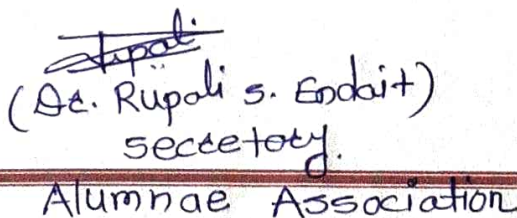 Rupali
(Dr. Rupali S. Endait)
Secretory.
Alumnae Association